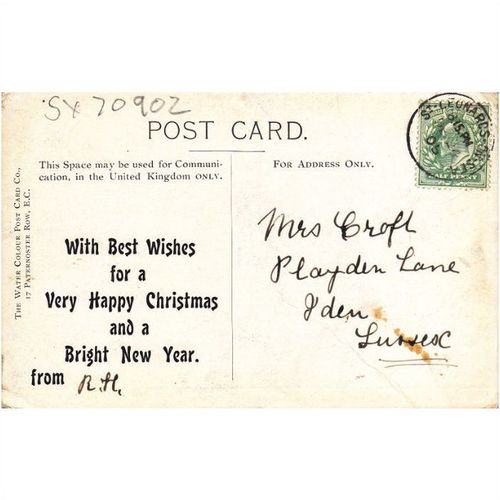 SX 70902
POST CARD.
This Space may be used for Communi-
cation, in the United Kingdom ONLY.
FOR ADDRESS ONLY.
THE WATER COLOUR POST CARD CO.,
17 PATERNOSTER ROW, E.C.
With Best Wishes
for a
Very Happy Christmas
and a
Bright New Year.
from R.H.
Mrs Croft
Playden Lane
Iden
Sussex
ST LEONARDS
HALF PENNY